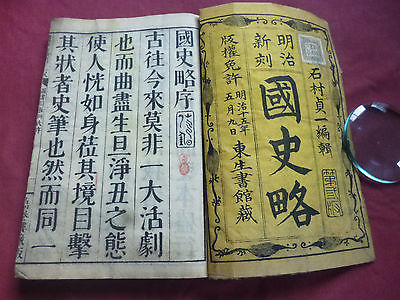 明治
新刻
石村貞一編輯
國史略
版權免許
明治十五年
五月九日
東生書館藏
國史略序
古往今來莫非一大活劇
也而曲盡生旦淨丑之態
使人恍如身莅其境目擊
其狀者史筆也然而同一